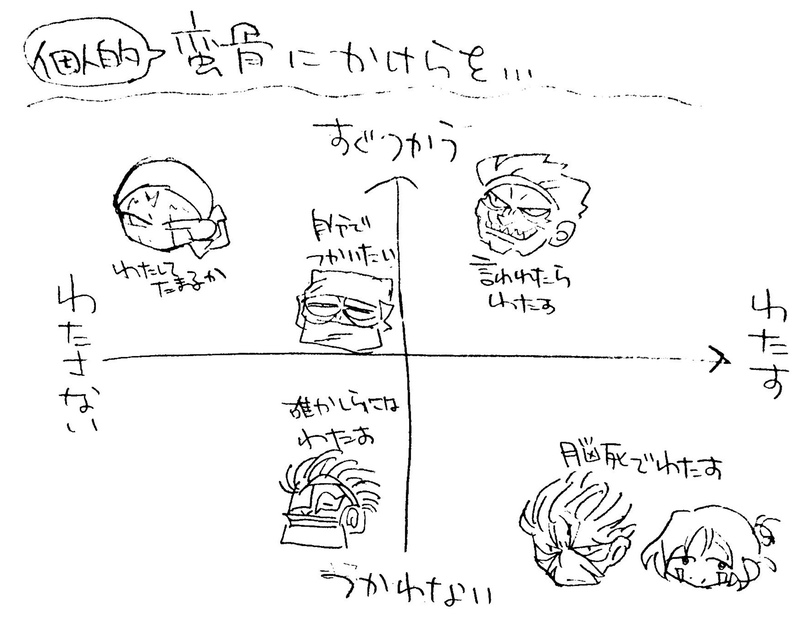 個人的 蛮骨にかけらを...
すぐつかう
自分で
つかいたい
わたして
たまるか
言われたら
わたす
わたさない
わたす
誰かしらには
わたす
脳死でわたす
つかわない